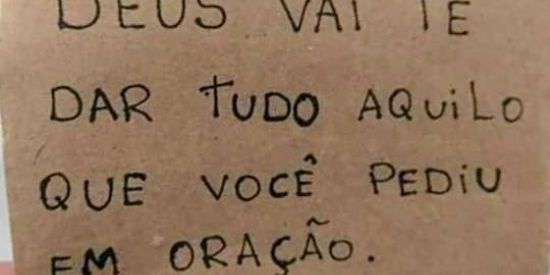 DEUS VAI TE
DAR TUDO AQUiLO
QUE VOCÊ PEDiU
EM ORAÇÃO.